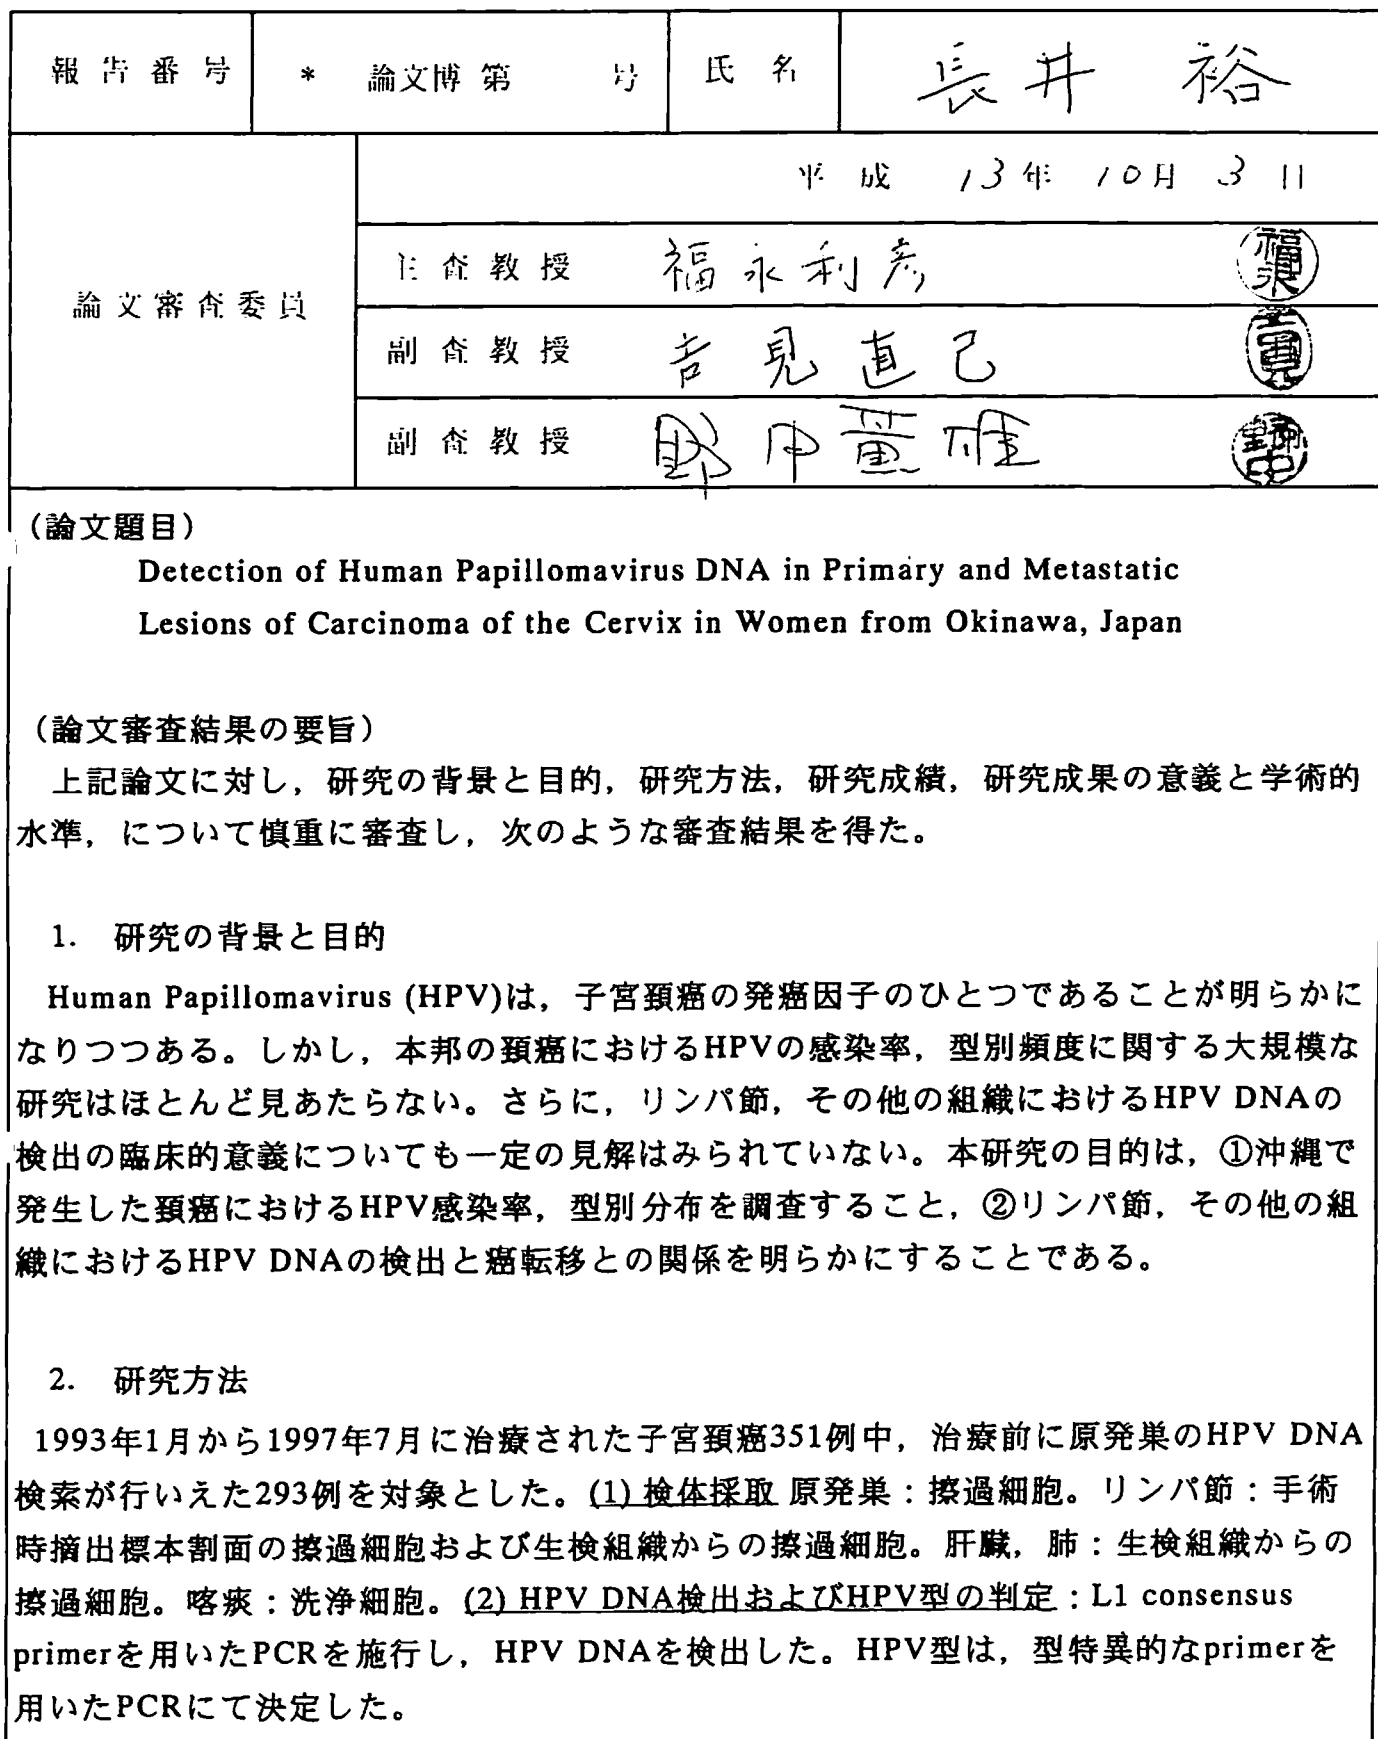 報告番号 * 論文博第 号 氏名 長井 裕
平成 13年 10月 3日
論文審査委員
主査教授 福永利彦 福永
副査教授 吉見直己 吉見
副査教授 野中薫雄 野中
(論文題目)
Detection of Human Papillomavirus DNA in Primary and Metastatic
Lesions of Carcinoma of the Cervix in Women from Okinawa, Japan
(論文審査結果の要旨)
上記論文に対し，研究の背景と目的，研究方法，研究成績，研究成果の意義と学術的
水準，について慎重に審査し，次のような審査結果を得た。
1. 研究の背景と目的
Human Papillomavirus (HPV)は，子宮頚癌の発癌因子のひとつであることが明らかに
なりつつある。しかし，本邦の頚癌におけるHPVの感染率，型別頻度に関する大規模な
研究はほとんど見あたらない。さらに，リンパ節，その他の組織におけるHPV DNAの
検出の臨床的意義についても一定の見解はみられていない。本研究の目的は，①沖縄で
発生した頚癌におけるHPV感染率，型別分布を調査すること，②リンパ節，その他の組
織におけるHPV DNAの検出と癌転移との関係を明らかにすることである。
2. 研究方法
1993年1月から1997年7月に治療された子宮頚癌351例中，治療前に原発巣のHPV DNA
検索が行いえた293例を対象とした。(1) 検体採取 原発巣：擦過細胞。リンパ節：手術
時摘出標本割面の擦過細胞および生検組織からの擦過細胞。肝臓，肺：生検組織からの
擦過細胞。喀痰：洗浄細胞。(2) HPV DNA検出およびHPV型の判定：L1 consensus
primerを用いたPCRを施行し，HPV DNAを検出した。HPV型は，型特異的なprimerを
用いたPCRにて決定した。